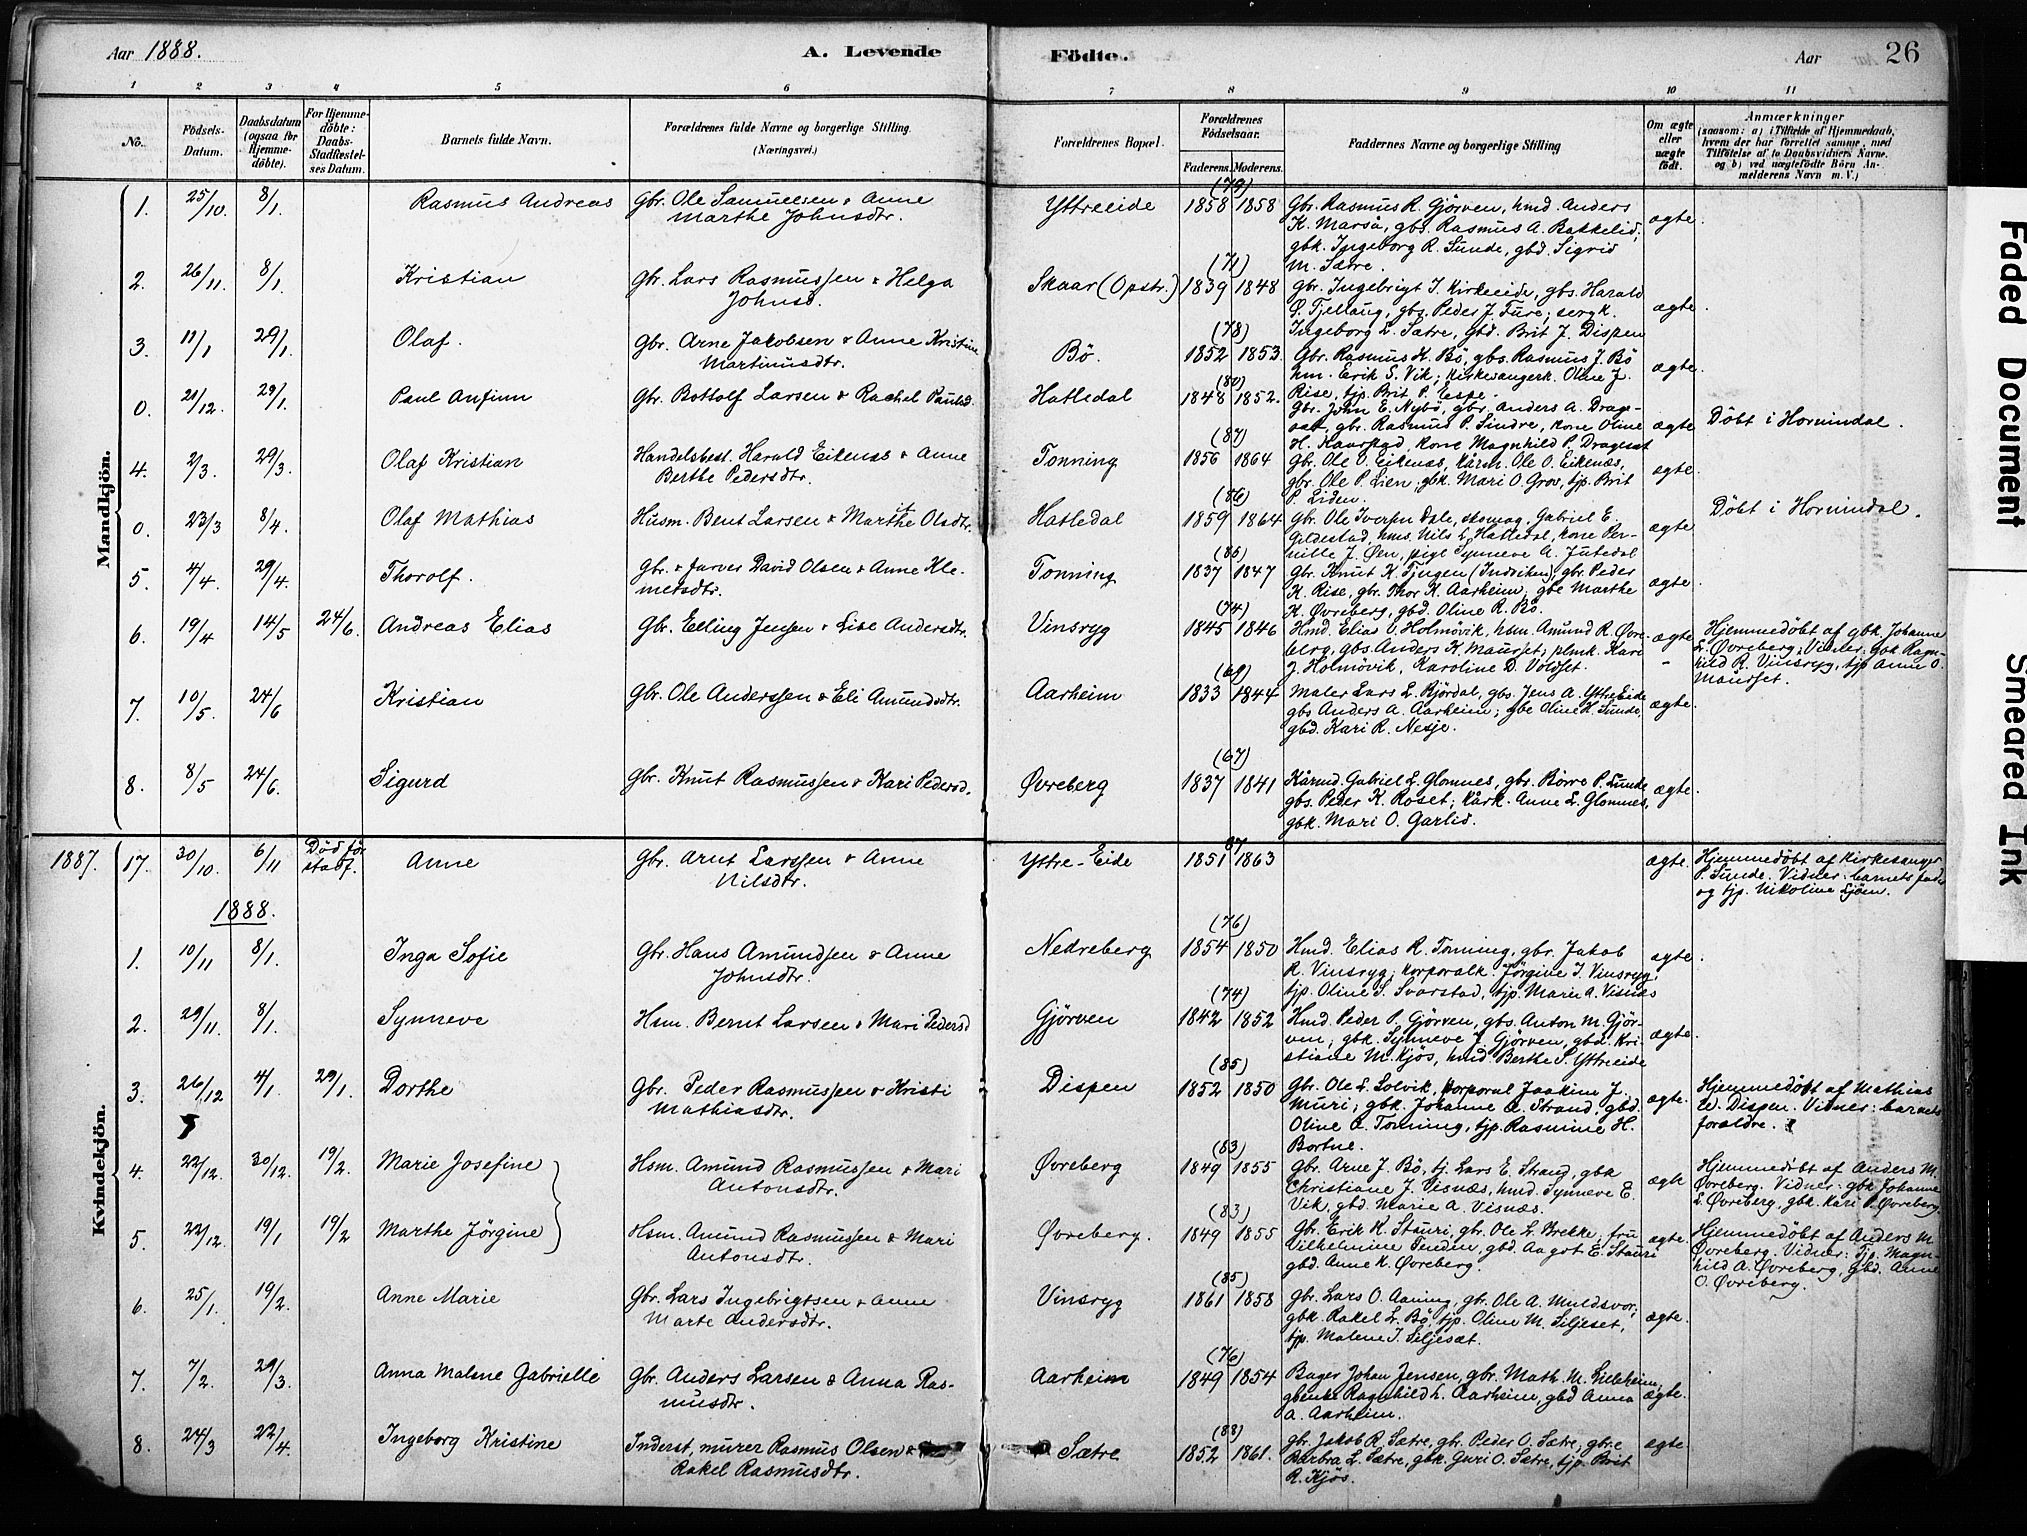 Aar 1888. A. Levende Födte. Aar 26
1 2 3 4 5 6 7 8 9 10 11
No. Födsels-Datum. Daabsdatum (ogsaa for Hjemme-döbte). For Hjemme-döbte: Daabs-Stadfæstel-ses Datum. Barnets fulde Navn. Forældrenes fulde Navne og borgerlige Stilling (Næringsvei.) Forældrenes Bopæl. Forældrenes Födselsaar. Faderens. Moderens. Faddernes Navne og borgerlige Stilling Om ægte eller uægte födt. Anmærkninger (saasom: a) i Tilfælde af Hjemmedaab, hvem der har forrettet samme, med Tilföielse af to Daabsvidners Navne, og b) ved uægtefödte Börn An-melderens Navn m. V.)
Mandkjön.
1. 25/10. 8/1. Rasmus Andreas Gbr. Ole Samuelsen & Anne Ytreeide (79) 1858 1858 Gbr. Rasmus R. Gjörven, hmd. Anders ægte.
Marthe Johnsdtr. K. Marså, gbs. Rasmus A. Bakkelid;
gbk. Ingeborg R. Sunde, gbd. Sigrid
M. Sætre.
2. 26/11. 8/1. Kristian Gbr. Lars Rasmussen & Helga Skaar (Opstr.) (71) 1839 1848 Gbr. Ingebrigt J. Kirkeeide, gbs. Harald ægte.
Johnsd. P. Fjellaug, gbs. Peder J. Fure; sergk.
Ingeborg L. Sætre, gbd. Brit J. Dispen
3. 11/1 29/1. Olaf. Gbr. Arne Jakobsen & Anne Kristine Bö. (78) 1852 1853. Gbr. Rasmus H. Bö, gbs. Rasmus J. Bö ægte.
Martinusdtr. hm. Erik S. Vik; Kirkesangerk. Oline J.
Rise, tjp. Brit P. Espe.
0. 21/12. 29/1. Paul Anfinn Gbr. Bottolf Larsen & Rachel Paulsd. Hatledal (80) 1848 1852. Gbr. John E. Nybö, gbr. Anders A. Drage- ægte Döbt i Hornindal.
sæt, gbr. Rasmus P. Lindre, kone Oline
H. Haarstad, kone Magnhild P. Dragesæt
4. 2/3. 29/3. Olaf Kristian Handelsbest. Harald Eikenæs & Anne Tonning (87) 1856 1864 Gbr. Ole O. Eikenæs, kårm. Ole O. Eikenæs, ægte
Berthe Pedersdtr. gbr. Ole P. Lien; gbk. Mari O. Grov, tjp. Brit
P. Liden.
0. 23/3 8/4. Olaf Mathias Husm. Bent Larsen & Marthe Olsdtr. Hatledal (86) 1859 1864 Gbr. Ole Iversen Dale, skomag. Gabriel E. ægte Döbt i Hornindal.
Gildestad, hms. Nils L. Hatledal, kone Per-
nille J. Øen, pige Synneve A. Jutedal
5. 4/4. 29/4. Thorolf. Gbr. & farver David Olsen & Anne Kle- Tonning (85) 1837 1847 Gbr. Knut K. Tjugen (Indviken), gbr. Peder ægte.
metsdtr. K. Rise, gbr. Thor K. Aarheim; gbe Marthe
K. Øvreberg, gbd. Oline R. Bö.
6. 19/4 14/5 24/6. Andreas Elias Gbr. Elling Jensen & Lise Andersdtr. Vinsryg (74) 1845 1846 Hmd. Elias O. Holmövik, hsm. Amund R. Øvre- ægte Hjemmedöbt af gbk. Johanne
berg, gbs. Anders K. Maurset; plmk. Kari L. Øvreberg; Vidner: gbk. Ragn-
J. Holmövik, Karoline D. Voldset. hild R. Vinsryg, tjp. Anne O.
Maurset.
7. 10/5. 24/6 Kristian Gbr. Ole Anderssen & Eli Amundsdtr. Aarheim (69) 1833 1844 Maler Lars L. Kjördal, gbs. Jens A. YtreEide ægte.
gbs Anders A. Aarheim; gbe Oline K. Sunde,
gbd. Kari R. Nesje.
8. 8/5 24/6. Sigurd Gbr. Knut Rasmussen & Kari Pedersd. Øvreberg (67) 1837 1841 Kårmd. Gabriel L. Glomnes, gbr. Börre P. Sunde ægte.
gbs. Peder K. Roset; kårk. Anne L. Glomnes,
gbk. Mari O. Garlid.
Kvindekjön.
1887. 17. 30/10. 6/11 Död för stadf. Anne Gbr. Arnt Larssen & Anne Ytre-Eide 87 1851 1863 ægte. Hjemmedöbt af Kirkesanger
Nilsdtr. P. Sunde. Vidner: barnets fader
og tjp. Nikoline Sjöen.
1888.
1. 10/11 8/1. Inga Sofie Gbr. Hans Amundsen & Anne Nedreberg (76) 1854 1850 Hmd. Elias R. Tonning, gbr. Jakob ægte.
Johnsdtr. R. Vinsryg; korporalk. Jörgine J. Vinsryg,
tjp. Oline S. Svarstad, tjp. Marie A. Visnæs
2. 29/11. 8/1. Synneve Hsm. Bernt Larsen & Mari Pedersd Gjörven (74) 1842 1852 Hmd. Peder P. Gjörven, gbs. Anton M. Gjör- ægte.
ven; gbk. Synneve J. Gjörven, gbd. Kri-
stiane M. Kjös, hmd Berthe S. Ytreeide
3. 26/12 4/1. 29/1. Dorthe Gbr. Peder Rasmussen & Kristi Dispen (85) 1852 1850 Gbr. Ole L. Solvik, korporal Joakim J. ægte. Hjemmedöbt af Mathias
Mathiasdtr. Muri; gbk. Johanne A. Strand, gbd. W. Dispen. Vidner: barnets
Oline A. Tonning, tjp. Rasmine H. forældre.
Bortne.
4. 22/12. 30/12. 19/2. Marie Josefine Hsm. Amund Rasmussen & Mari Øvreberg (83) 1849 1855 Gbr. Arne J. Bö, tj. Lars E. Strand, gbk ægte Hjemmedöbt af Anders M.
Antonsdtr. Christiane J. Visnæs, hmd. Synneve E. Øvreberg. Vidner: gbk. Johanne
Vik, gbd. Marie A. Visnæs. L. Øvreberg, gbk. Kari P. Øvreberg.
5. 22/12. 19/1 19/2 Marthe Jörgine Hsm. Amund Rasmussen & Mari Øvreberg. (83) 1849 1855 Gbr. Erik K. Stauri, gbr. Ole L. Brekke; fru ægte. Hjemmedöbt af Anders M.
Antonsdtr. Vilhelmine Tenden, gbd. Aagot E. Stauri Øvreberg. Vidner: Tjp. Magn-
gbd. Anne K. Øvreberg. hild A. Øvreberg, gbd. Anne
O. Øvreberg.
6. 25/1. 19/2. Anne Marie Gbr. Lars Ingebrigtsen & Anne Vinsryg (85) 1861 1858 Gbr. Lars O. Aaning, gbr. Ole A. Muldsvor, ægte.
Marte Andersdtr. gbk. Rakel L. Bö, tjp. Oline M. Siljeset,
tjp. Malene J. Siljesæt.
7. 7/2. 29/3. Anna Malene Gabrielle Gbr. Anders Larsen & Anna Ras- Aarheim (76) 1849 1854 Bager Johan Jensen, gbr. Math. M. Lilleheim, ægte.
musdtr. gbenke Ragnhild L. Aarheim, gbd Anna
A. Aarheim.
8. 24/3 22/4. Ingeborg Kristine Inderst, murer Rasmus Olsen & Sætre (88) 1852 1861. Gbr. Jakob R. Sætre, gbr. Peder O. Sætre; gbre ægte.
Rakel Rasmusdtr. Barbra L. Sætre, gbk. Guri O. Sætre, tjp. Brit
R. Kjös.
Faded Document
Smeared Ink